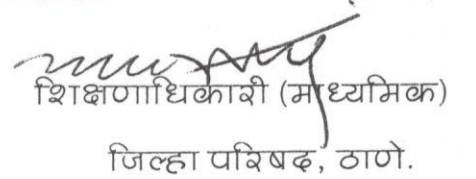 शिक्षणाधिकारी (माध्यमिक)
जिल्हा परिषद, ठाणे.